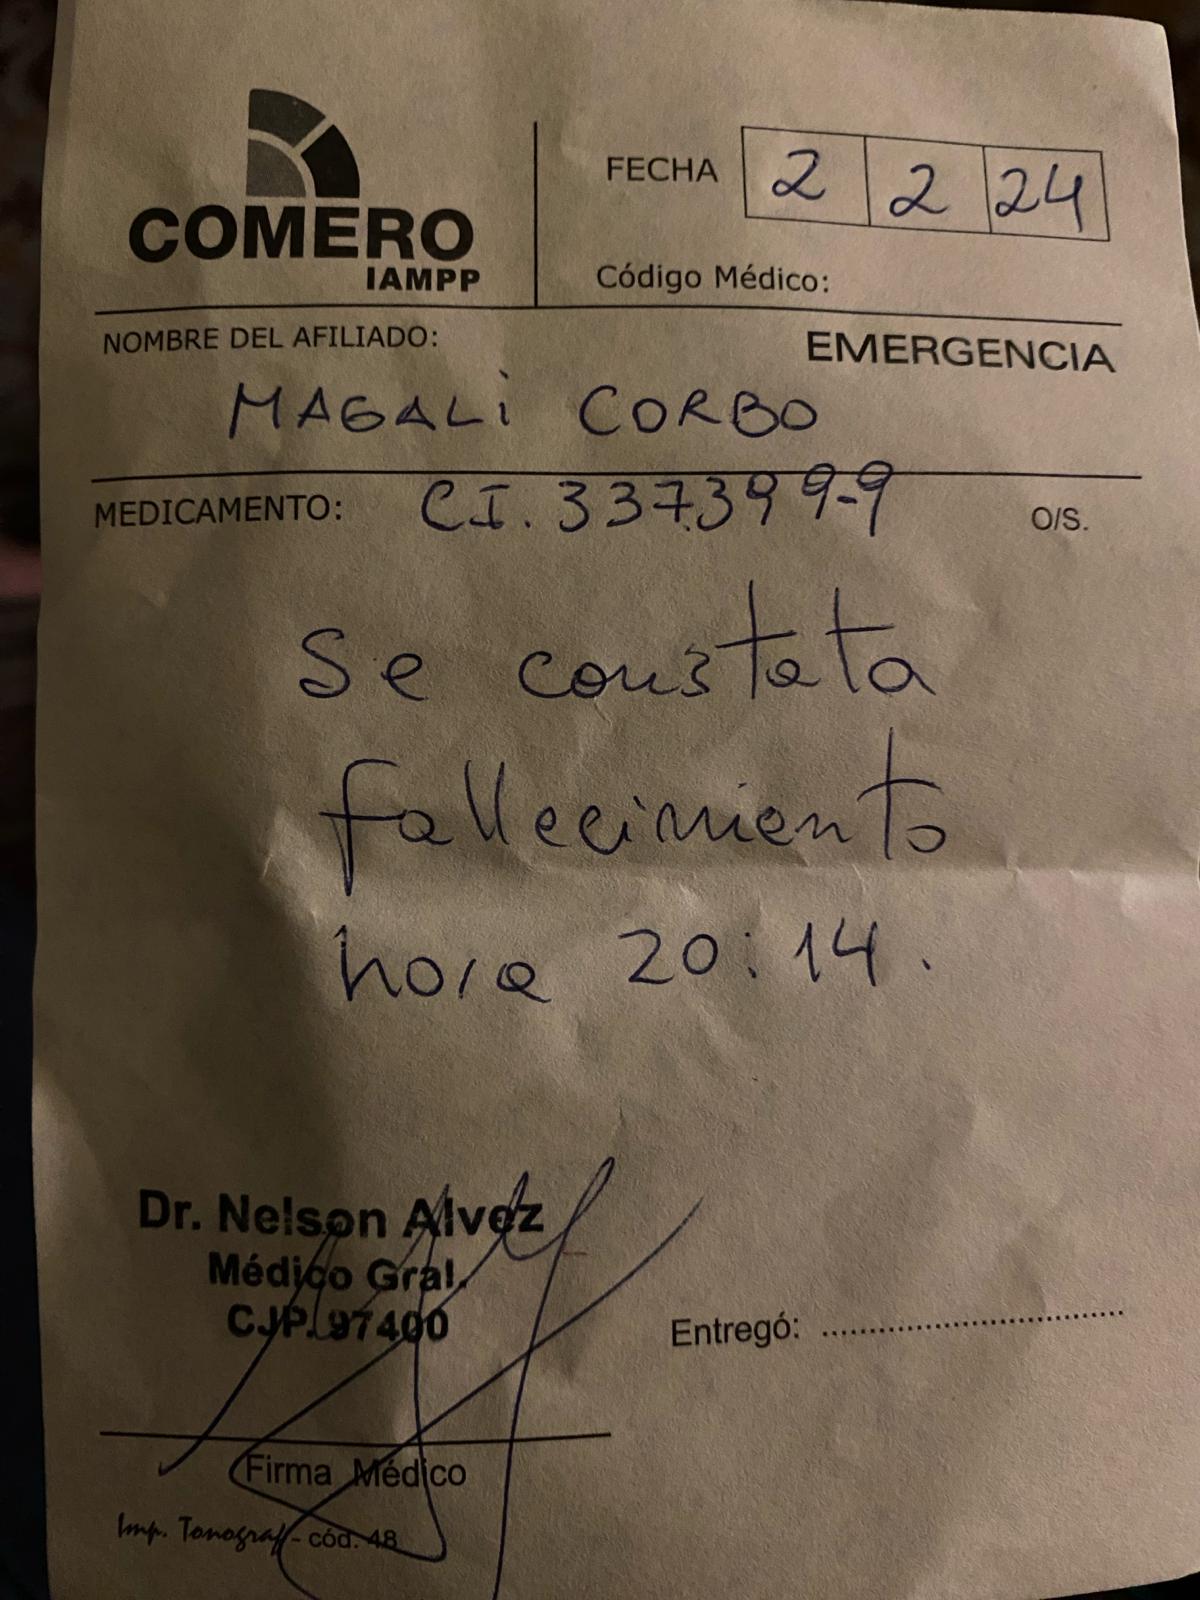 COMERO
IAMPP
FECHA 2 2 24
Código Médico:
NOMBRE DEL AFILIADO:
EMERGENCIA
MAGALI CORBO
MEDICAMENTO: CI. 337.399-9 O/S.
Se constata
fallecimiento
hora 20:14.
Dr. Nelson Alvez
Médico Gral.
CJP. 97400
Entregó:
Firma Médico
Imp. Tonograf - cód. 48